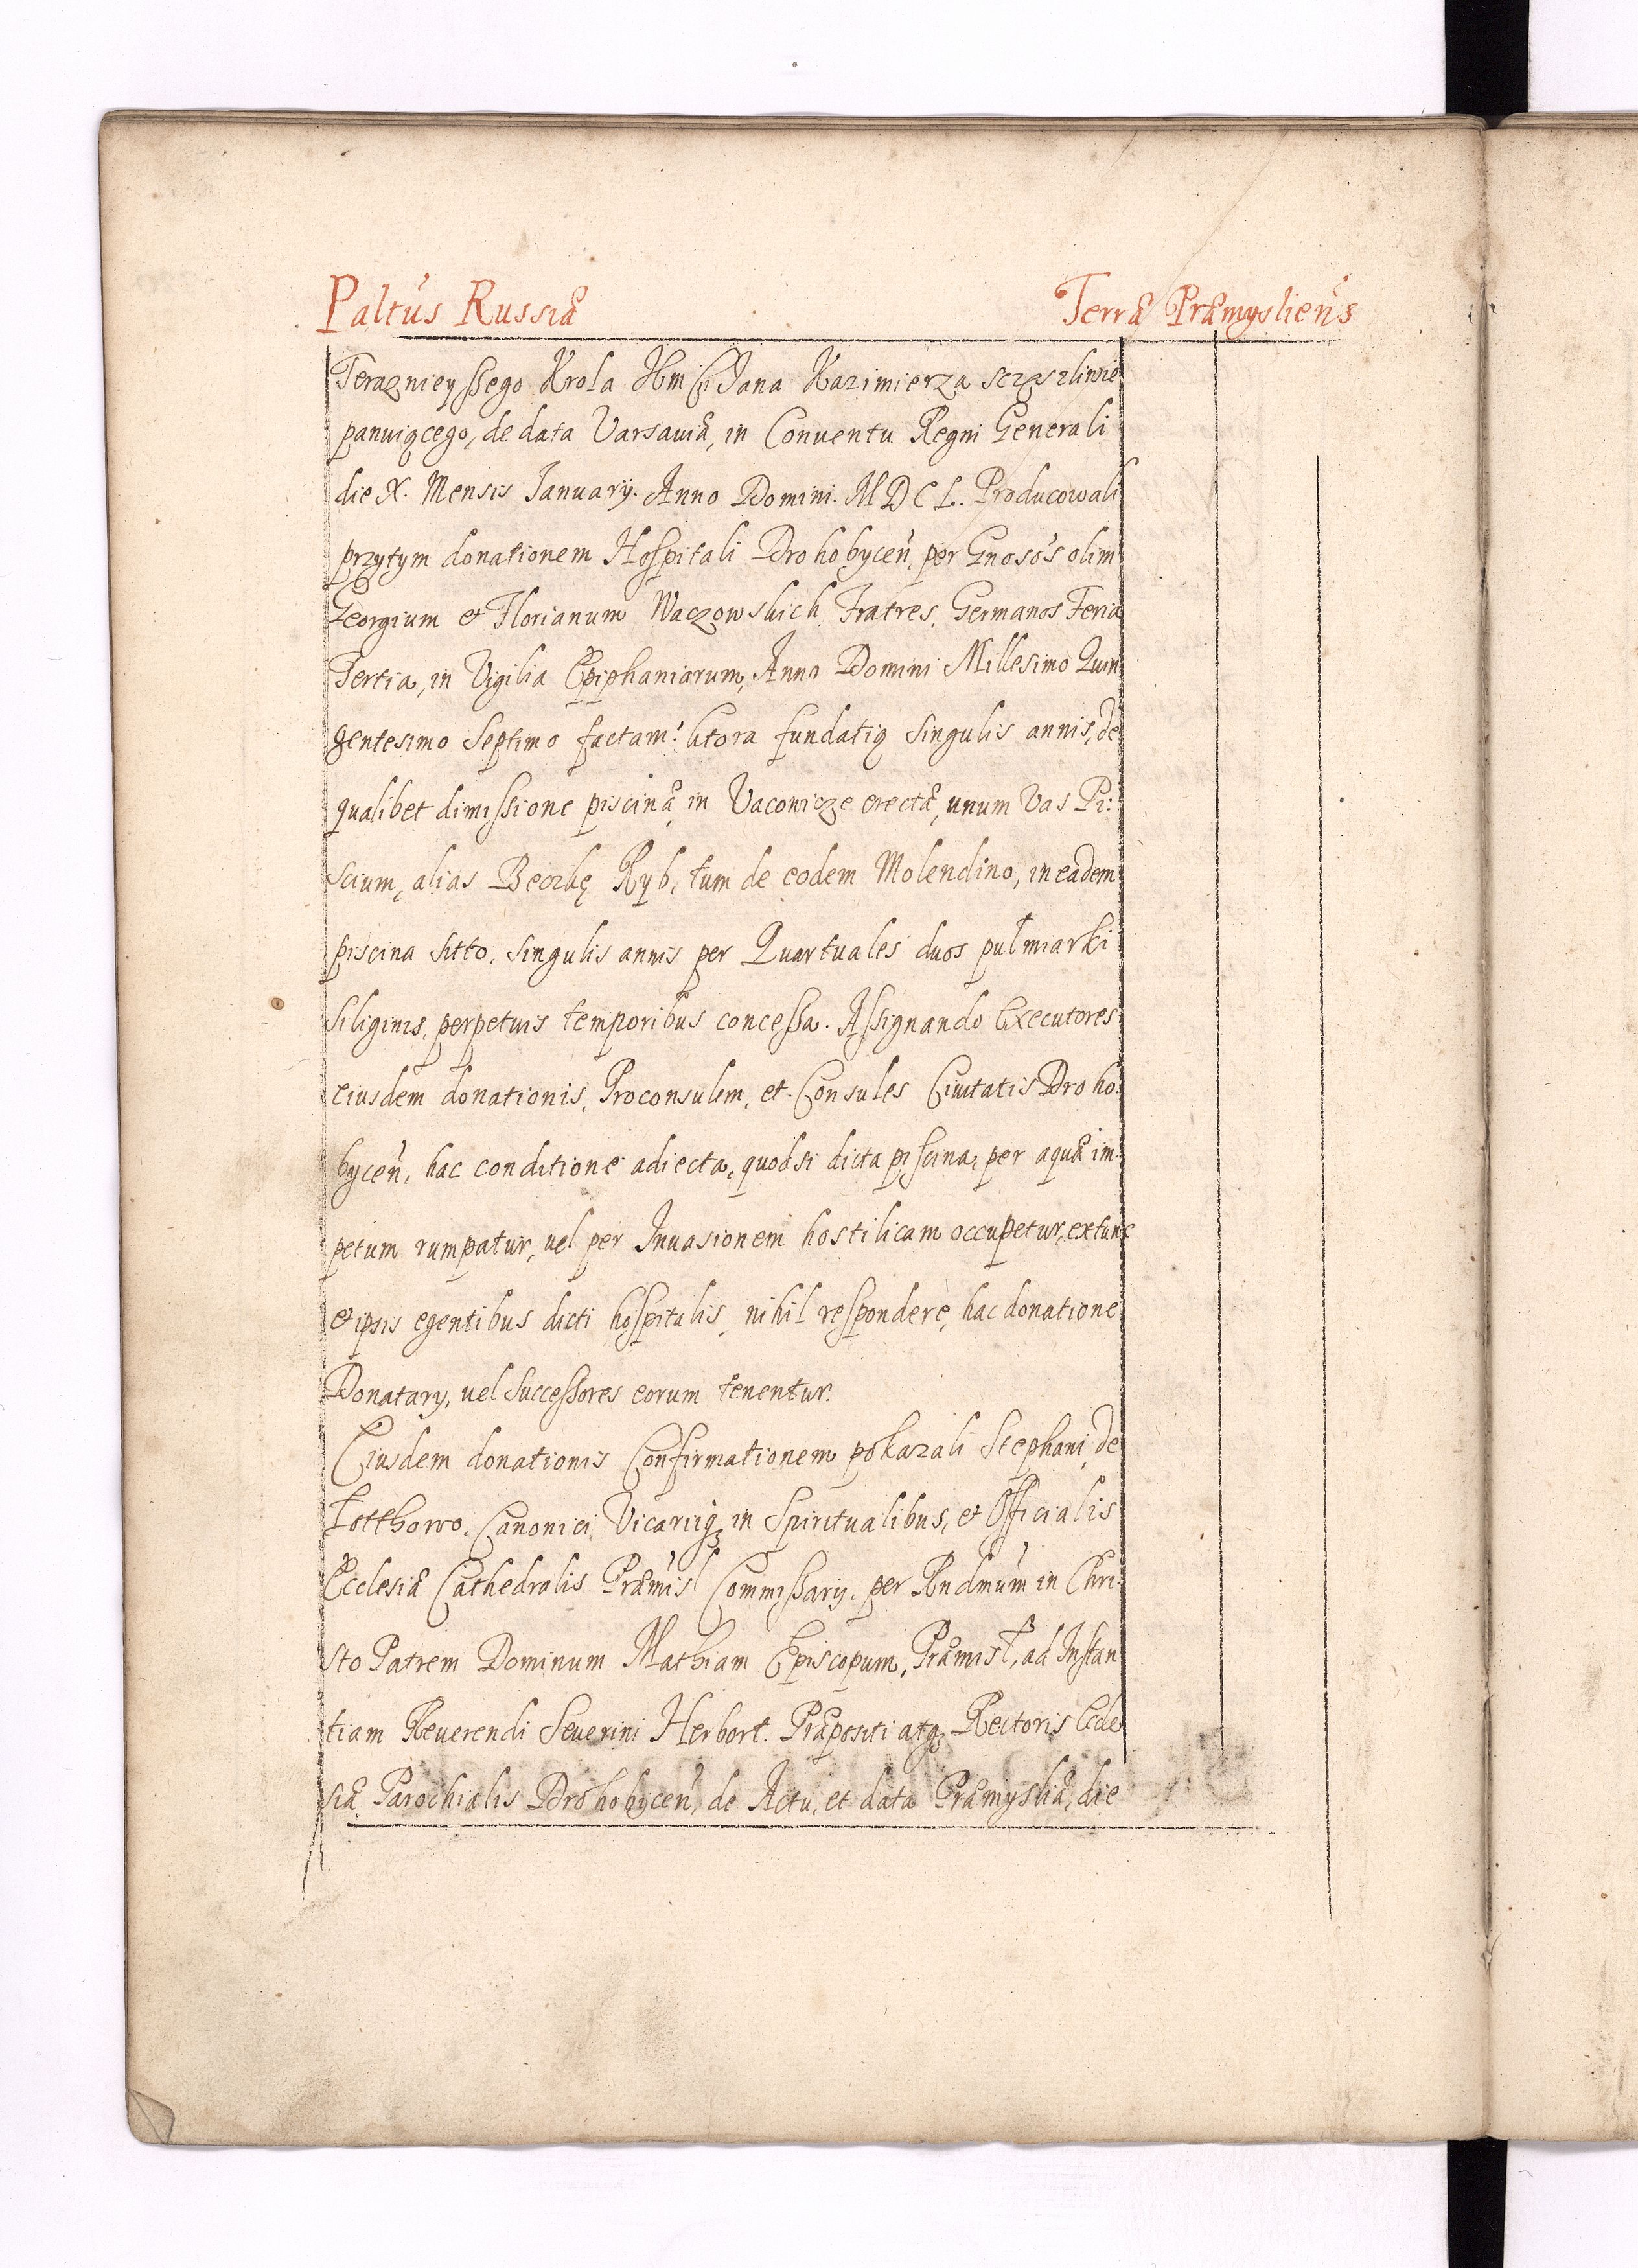 Paltus Russiæ Terræ Præmysliens
Teraznieyssego Krola Jmści Jana Kazimierza sczęszliwie
panuiącego, de data Varsauiæ, in Conuentu Regni Generali
die X. Mensis Januarÿ. Anno Domini. MDCL. Producowali
przytym donationem Hospitali Drohobyceń, per Gnosós olim
Georgium et Florianum Waczowskich Fratres, Germanos Feria
Tertia, in Vigilia Epiphaniarum, Anno Domini Millesimo Quin
gentesimo Septimo factam: ktora fundatią singulis annis, de
qualibet dimissione piscinæ in Vaconicze erectæ, unum Vas Pi:
scium, alias Beczkę Ryb, tum de eodem Molendino, in eadem
piscina sitto, singulis annis per Quartuales duos pułmiarki
siliginis, perpetuis temporibus concessa. Assignando Executores
eiusdem donationis, Proconsulem, et Consules Ciuitatis Droho:
byceń, hac conditione adiecta, quod si dicta piscina, per aquæ im:
petum rumpatur, uel per Inuasionem hostilicam occupetur, extunc
et ipsis egentibus dicti hospitalis, nihil respondere, hac donatione
Donatarÿ, uel Successores eorum tenentur.
Eiusdem donationis Confirmationem pokazali Stephani de
Canonici Vicariiq₃ in Spiritualibus, et Officialis
Ecclesiæ Cathedralis Præmisl Commissarÿ. per Rndmum in Chri:
sto Patrem Dominum Mathiam Episcopum, Præmisł, ad Instan
tiam Reuerendi Seuerini Herbort. Præpositi atq₃ Rectoris Ecle
siæ Parochialis Drohobyceń, de Actu, et data Præmysliæ, die